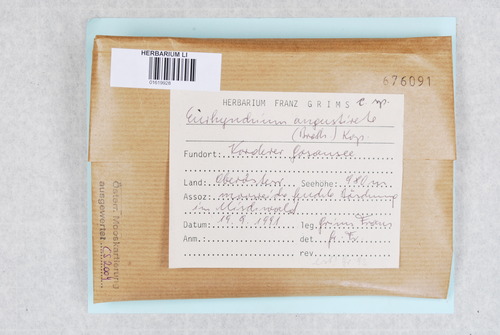 HERBARIUM LI
676091
HERBARIUM FRANZ GRIMS c. sp.
Eurhynchium angustirete
(Broth.) Kop.
Fundort: Vorderer Gosausee
Land: Oberösterr. Seehöhe: 940 m
Assoz:
im Mischwald
Datum: 19. 9. 1991 leg. Grims Franz
Anm.: det. Gr. F.
rev.
Österr. Mooskartierung
ausgewertet: CS 2004